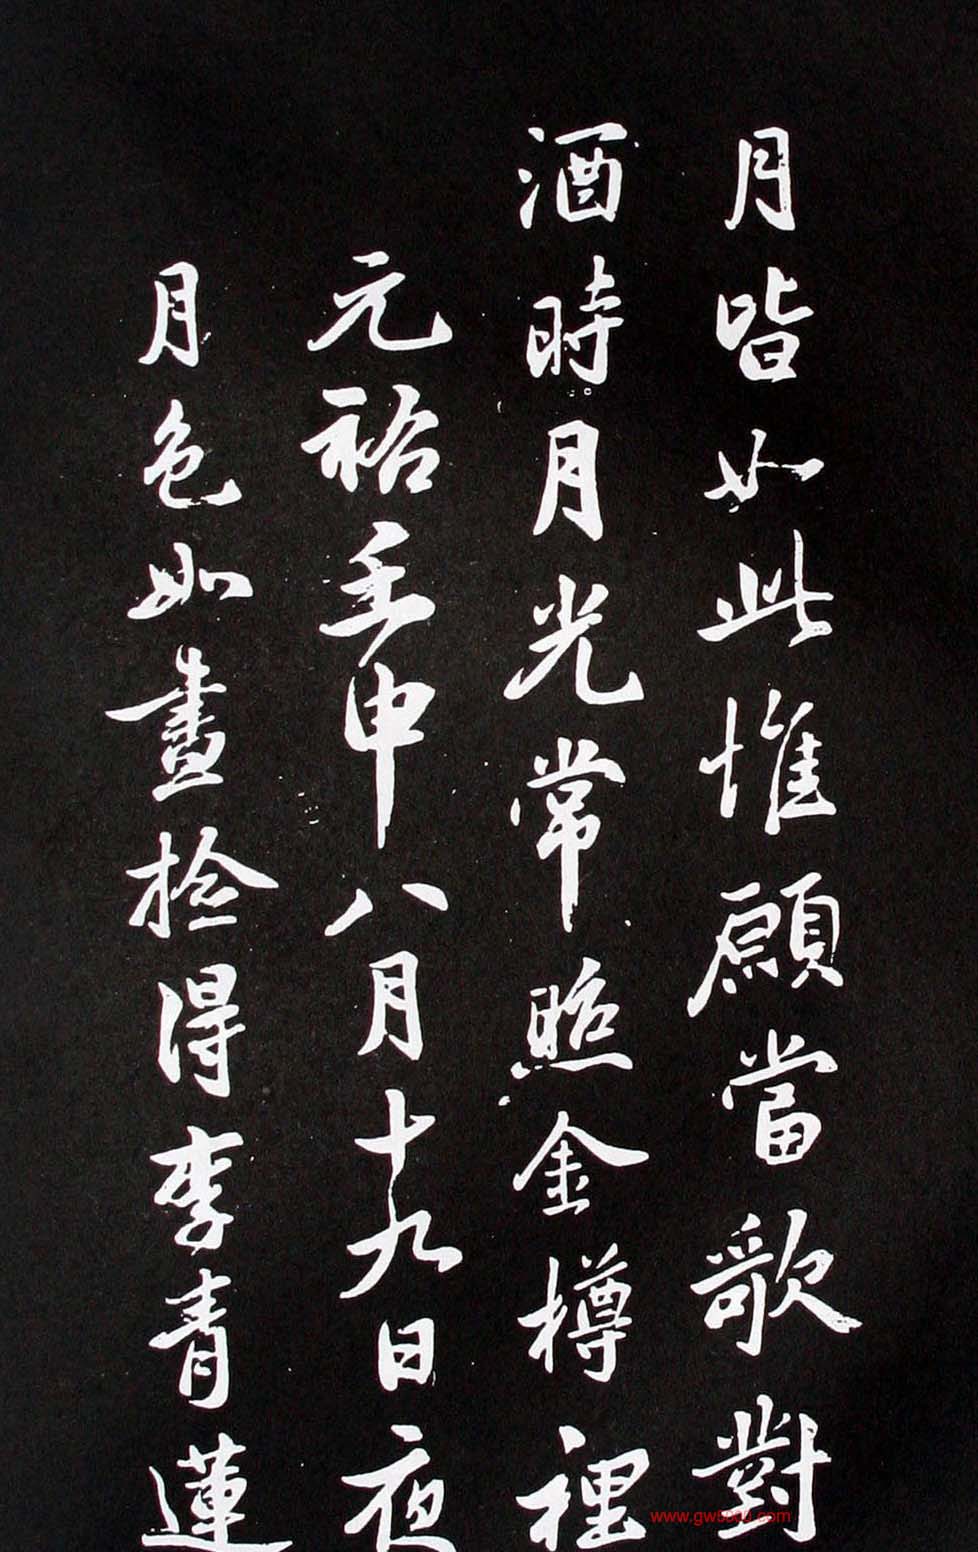 月皆如此惟願當歌對
酒時月光常照金樽裡
元祐壬申八月十九日夜
月色如晝拾得李青蓮